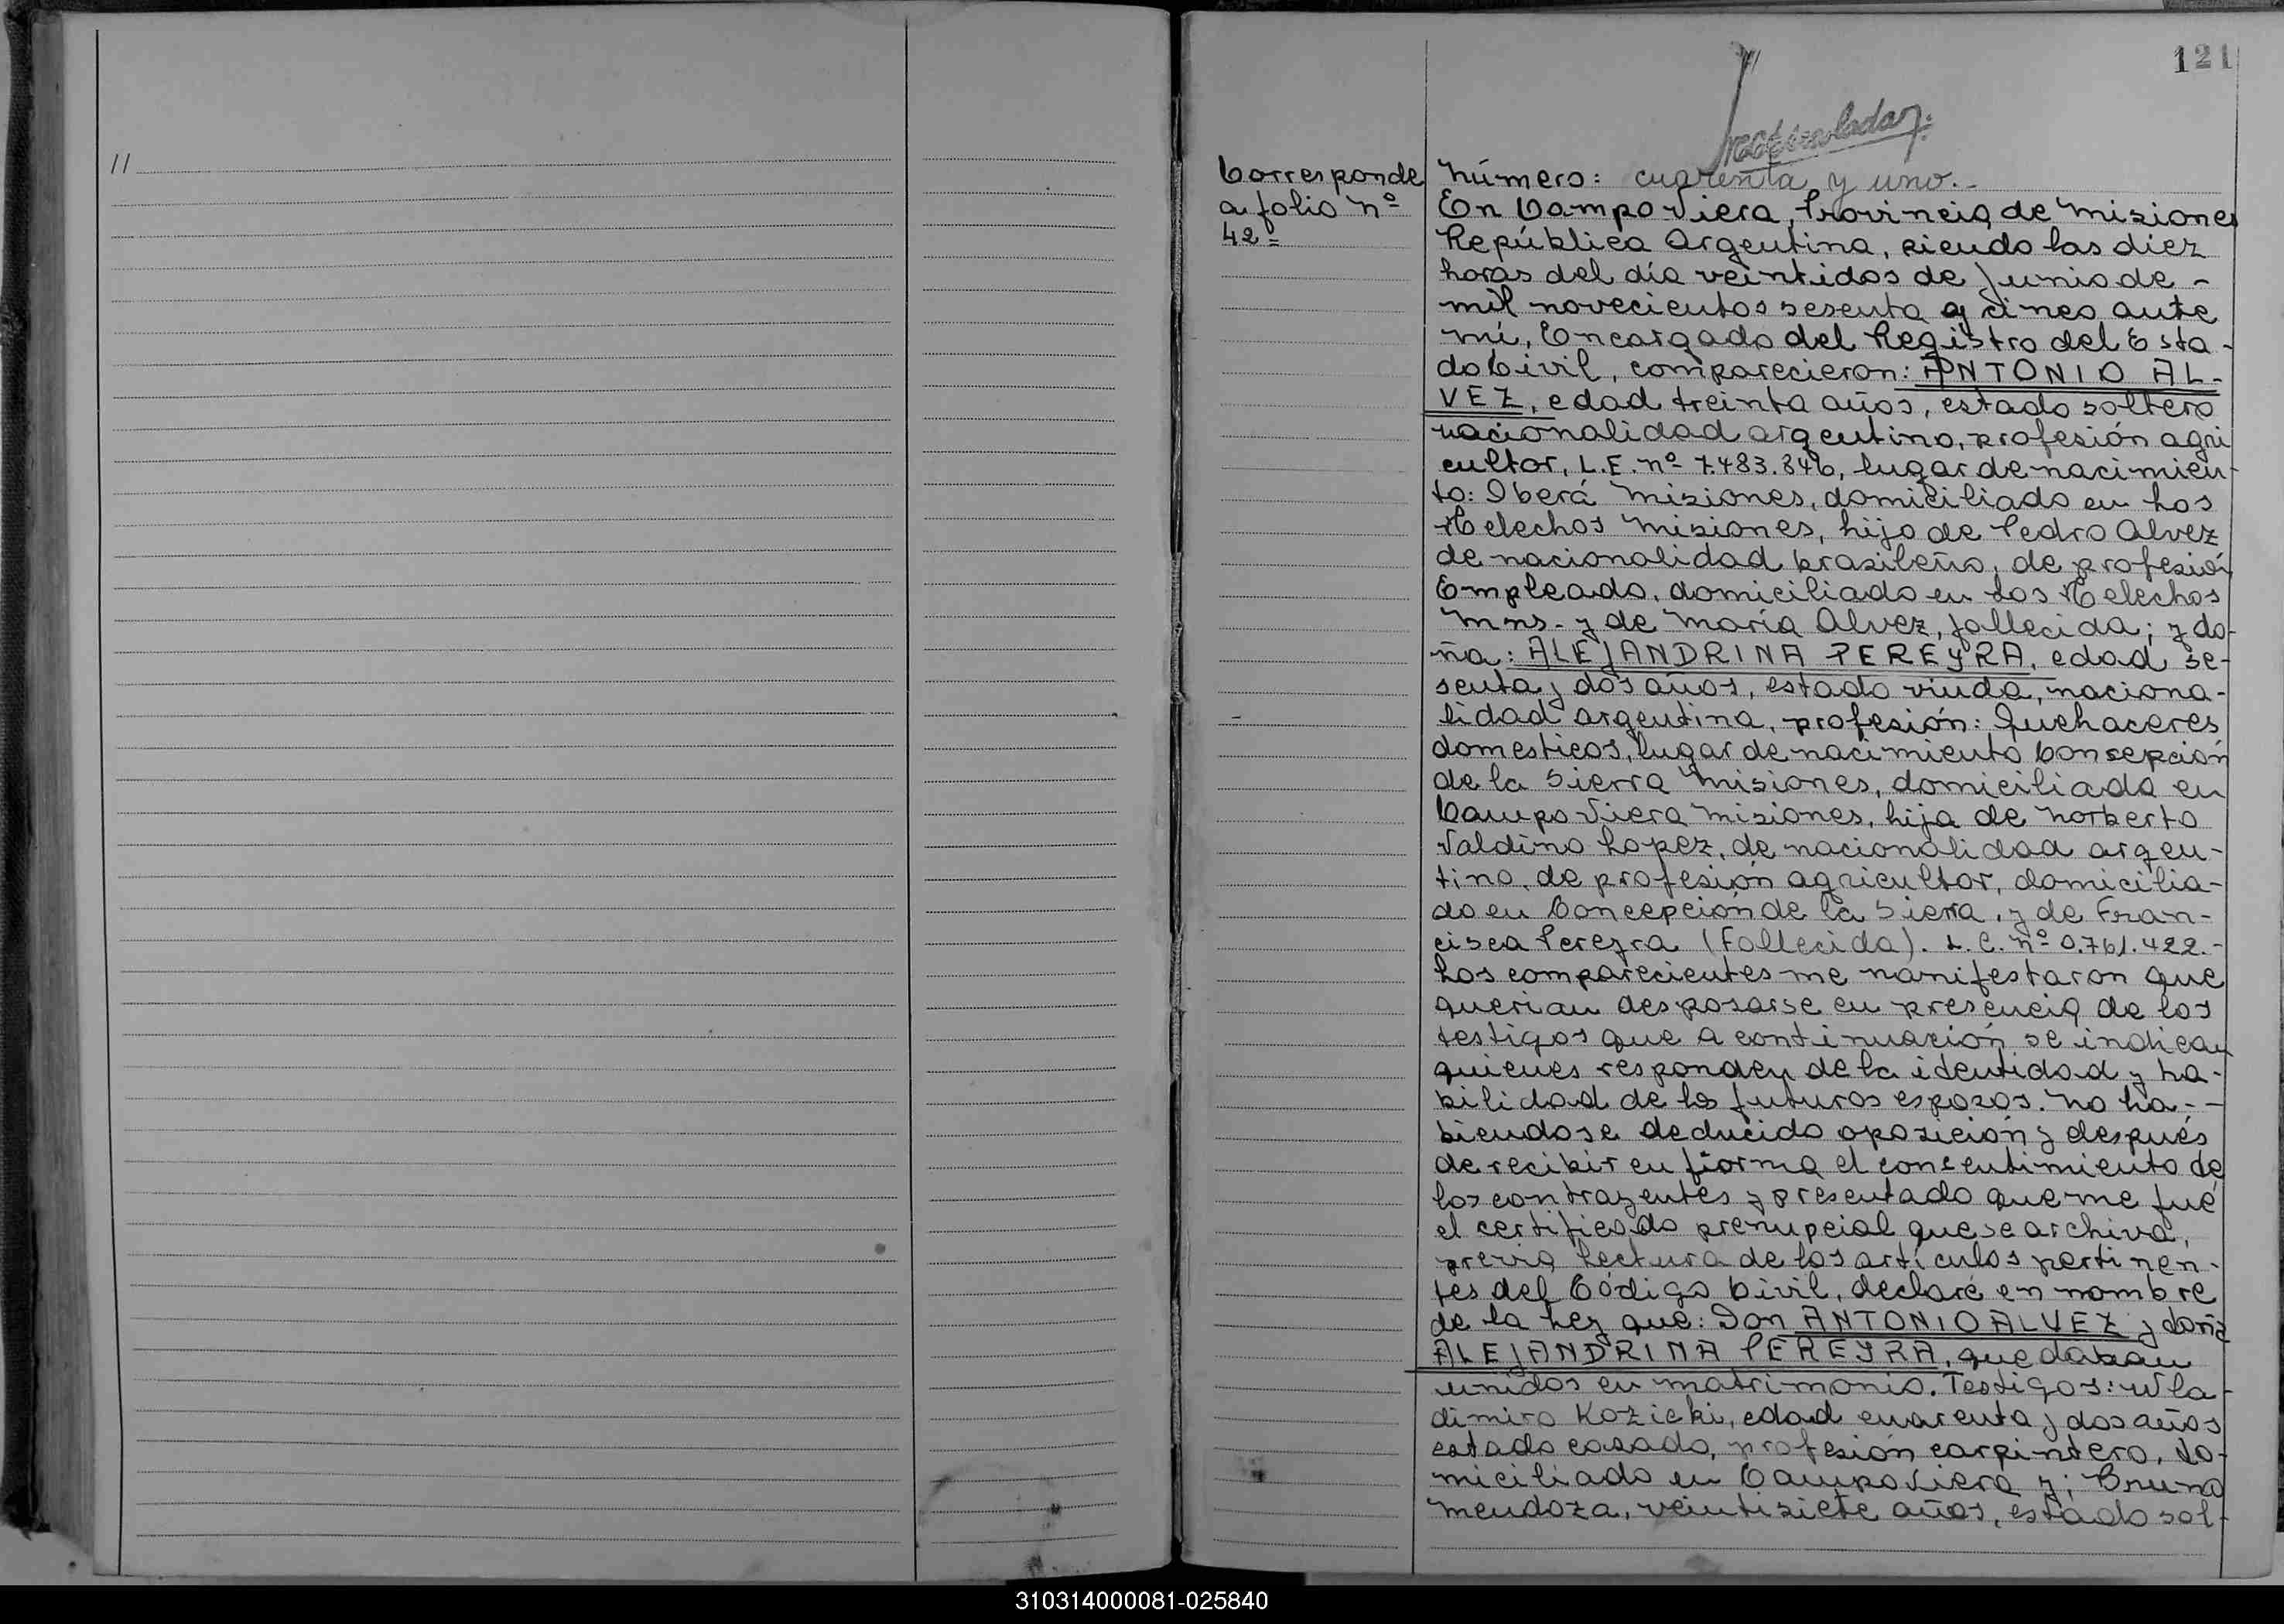 121
//
Corresponde
a folio nº
42=
Número: cuarenta y uno.-
En Campo Viera, Provincia de Misiones
República Argentina, siendo las diez
horas del día veintidos de Junio de -
mil novecientos sesenta y cinco ante
mí, Encargado del Registro del Esta-
do Civil, comparecieron: ANTONIO AL-
VEZ, edad treinta años, estado soltero
nacionalidad argentino, profesión agri
cultor, L.E. nº 7.483.846, lugar de nacimien-
to: Oberá Misiones, domiciliado en Los
Helechos Misiones, hijo de Pedro Alvez
de nacionalidad brasileño, de profesión
Empleado, domiciliado en Los Helechos
Mns.- y de María Alvez, fallecida; y do-
ña: ALEJANDRINA PEREYRA, edad se-
senta y dos años, estado viuda, naciona-
lidad argentina, profesión: Quehaceres
domesticos, lugar de nacimiento Consepción
de la Sierra Misiones, domiciliada en
Campo Viera Misiones, hija de Norberto
Valdino Lopez, de nacionalidad argen-
tino, de profesión agricultor, domicilia-
do en Concepción de la Sierra, y de Fran-
cisca Pereyra (Fallecida). L.C. nº 0.761.422.-
Los comparecientes me manifestaron que
querian desposarse en presencia de los
testigos que a continuación se indican
quienes responden de la identidad y ha-
bilidad de los futuros esposos. No ha--
biendose deducido oposición y después
de recibir en forma el consentimiento de
los contrayentes y presentado que me fué
el certificado prenupcial que se archiva,
previa lectura de los artículos pertinen-
tes del Código Civil, declaré en nombre
de la Ley que: Don ANTONIO ALVEZ y doña
ALEJANDRINA PEREYRA, quedaban
unidos en matrimonio. Testigos: Wla-
dimiro Kozicki, edad cuarenta y dos años
estado casado, profesión carpintero, do-
miciliado en Campo Viera y; Bruno
Mendoza, veintisiete años, estado sol-
310314000081-025840